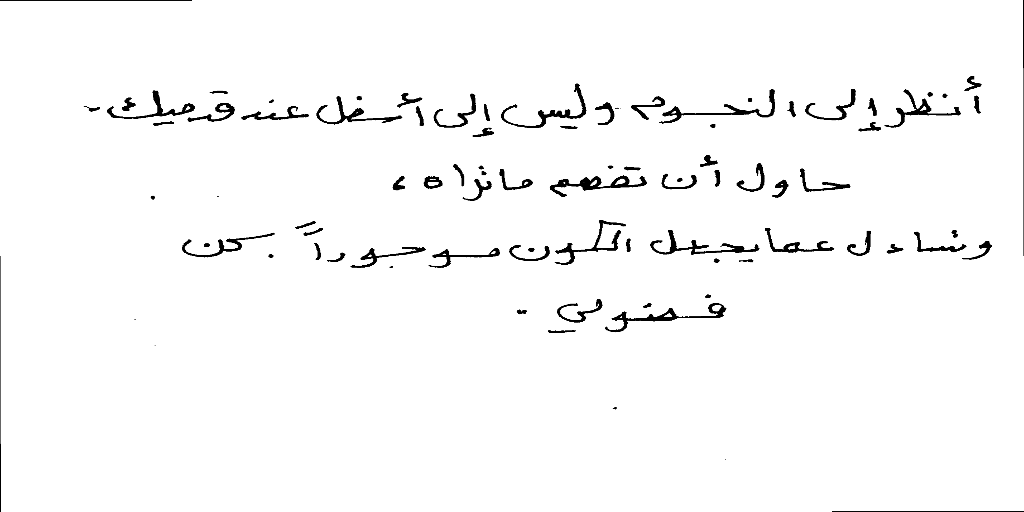 أنظر إلى النجوم وليس إلى أسفل عند قدميك.
حاول أن تفهم ما تراه،
وتساءل عما يجعل الكون موجوداً. كن
فضولي.